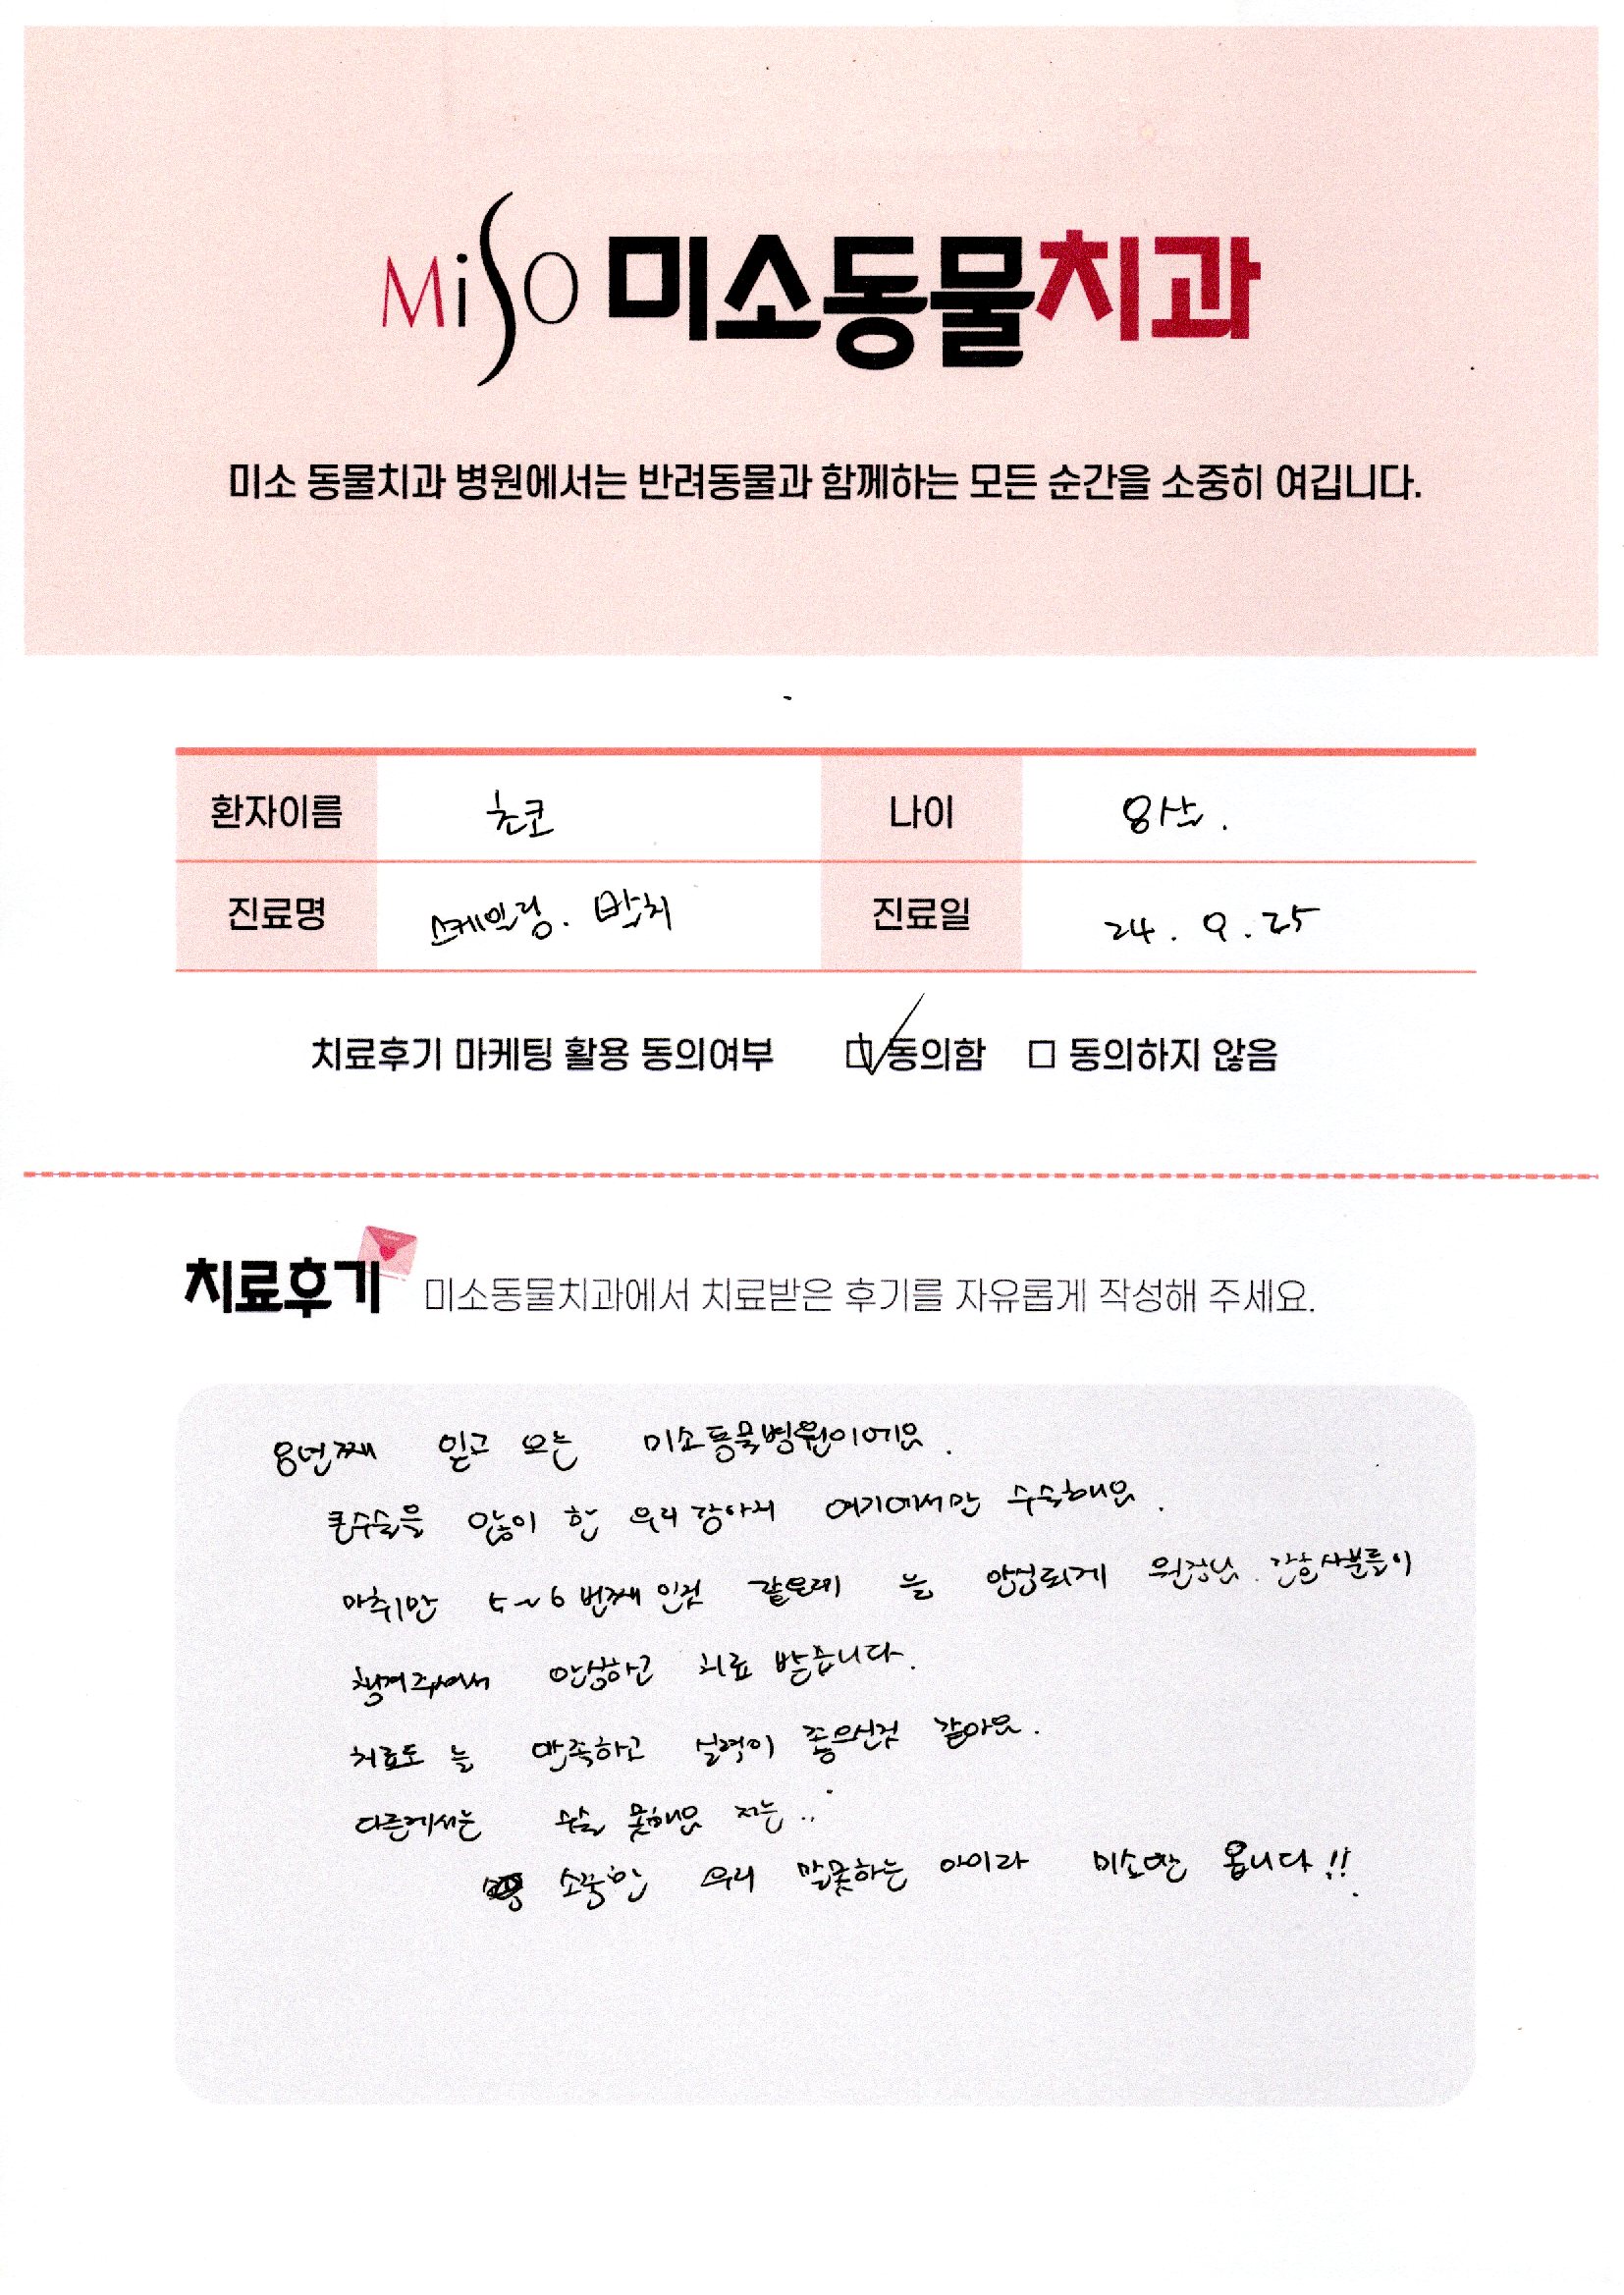 MiSO 미소동물치과
미소 동물치과 병원에서는 반려동물과 함께하는 모든 순간을 소중히 여깁니다.
환자이름 초코 나이 8살.
진료명 스케일링. 발치 진료일 24. 9. 25
치료후기 마케팅 활용 동의여부 ☑ 동의함 ☐ 동의하지 않음
치료후기 미소동물치과에서 치료받은 후기를 자유롭게 작성해 주세요.
8년째 믿고 오는 미소동물병원이에요.
큰수술을 많이 한 우리 강아지 여기에서만 수술해요.
마취만 5~6번째 인것 같은데 늘 안심되게 원장님. 간호사분들이
챙겨주셔서 안심하고 치료 받습니다.
치료도 늘 만족하고 실력이 좋으신것 같아요.
다른데서는 수술 못해요 저는..
소중한 우리 말못하는 아이라 미소만 옵니다!!